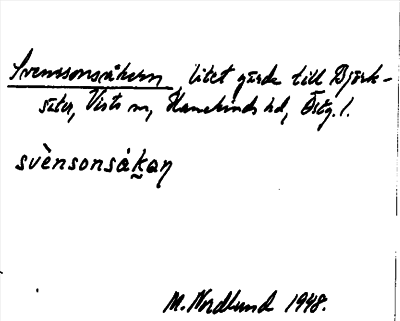 Svenssonsåkern, litet gärde till Björk-
säter, Visti sn, Hanekinds hd, Östg. l.
svènsonsåkaṇ
M. Nordlund 1948.